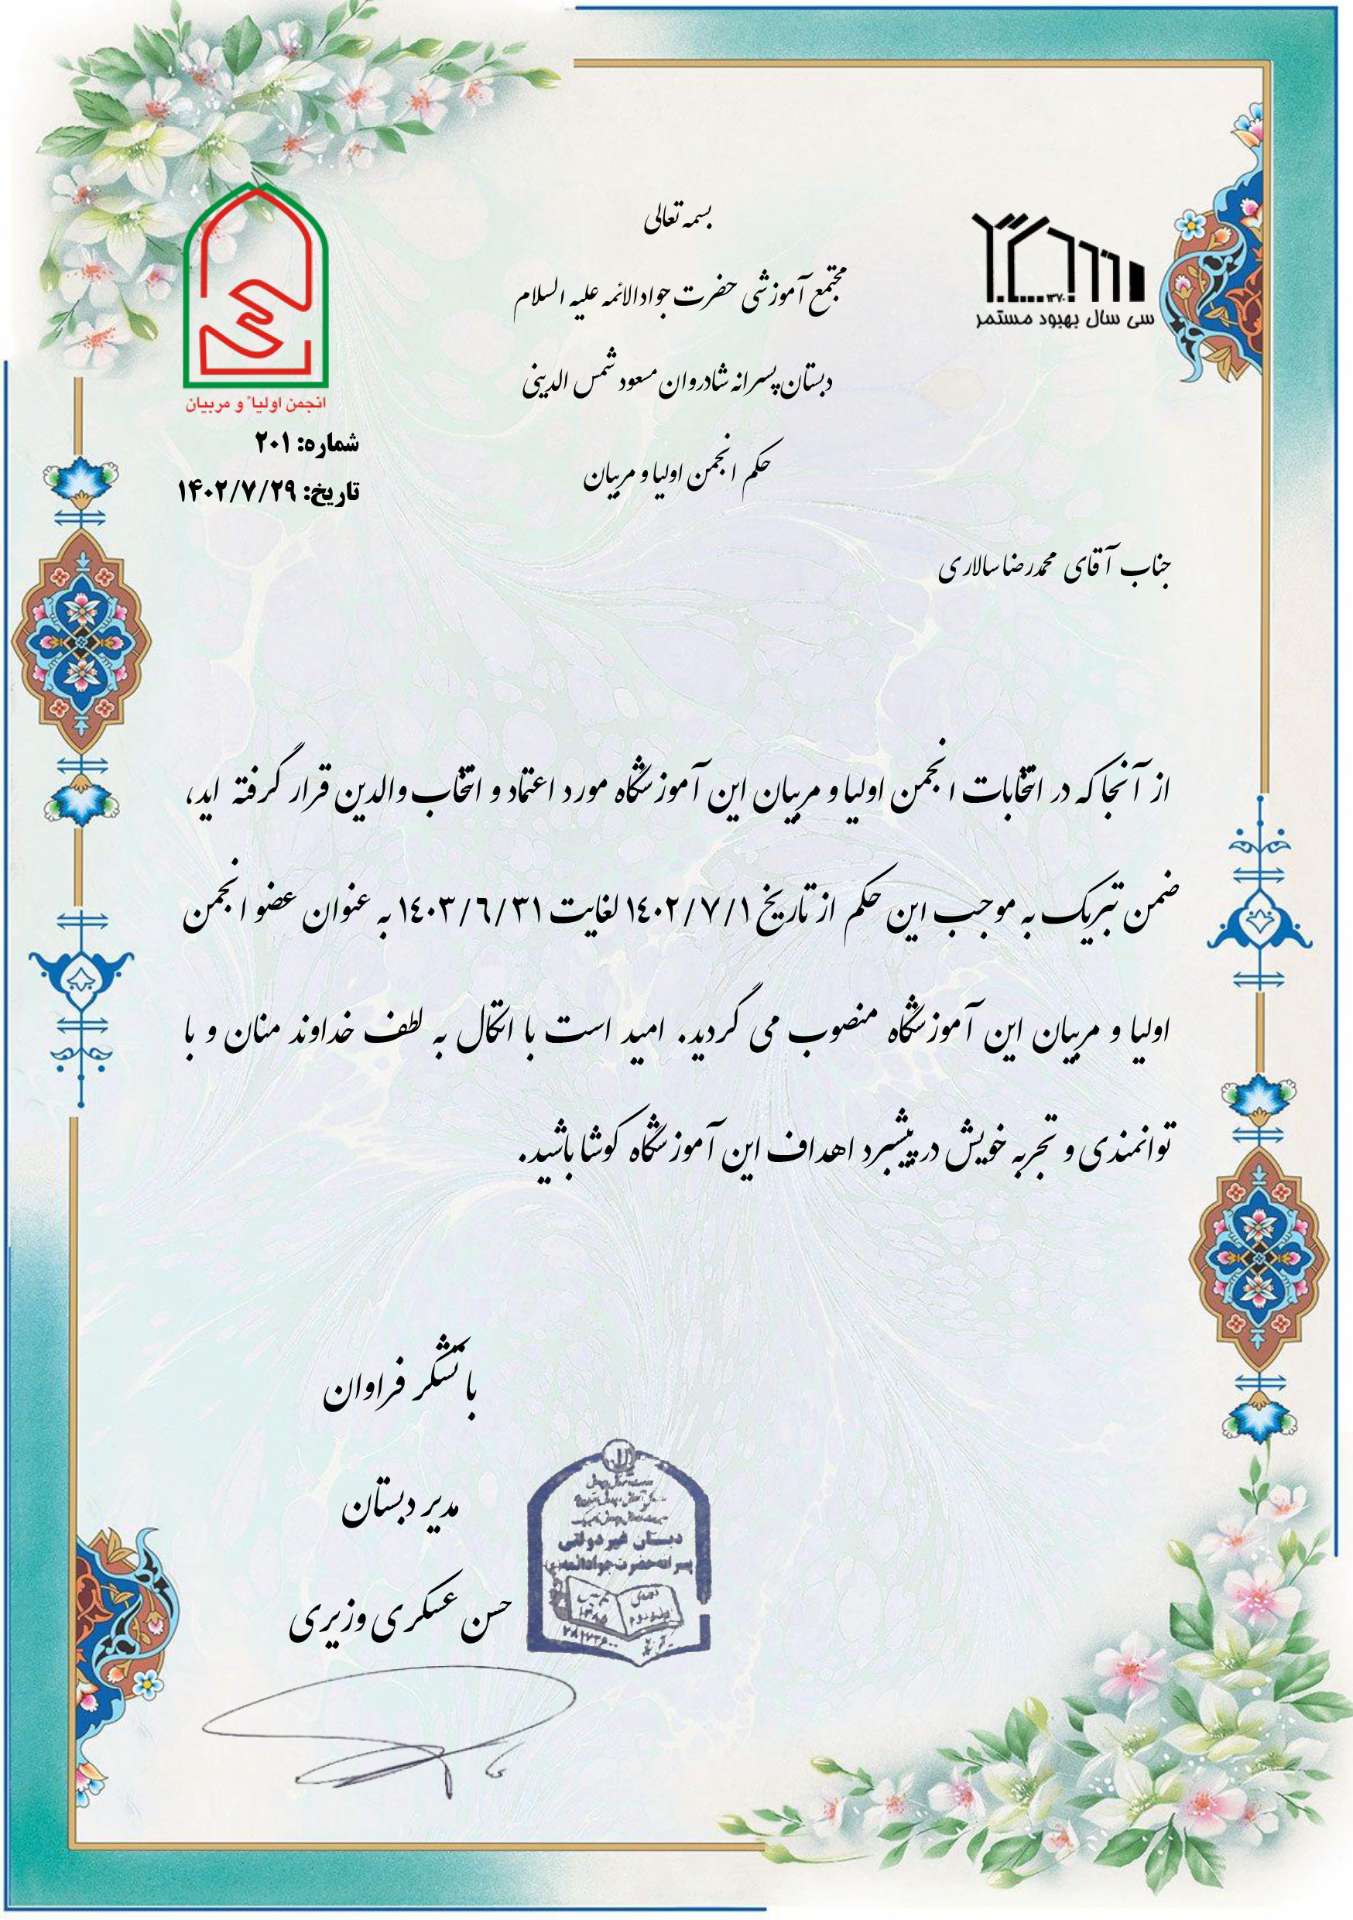 بسمه تعالی
مجتمع آموزشی حضرت جوادالائمه علیه السلام
دبستان پسرانه شادروان مسعود شمس الدینی
حکم انجمن اولیا و مربیان
۱۳۷۰
سی سال بهبود مستمر
انجمن اولیاء و مربیان
شماره: ۲۰۱
تاریخ: ۱۴۰۲/۷/۲۹
جناب آقای محمدرضا سالاری
از آنجا که در انتخابات انجمن اولیا و مربیان این آموزشگاه مورد اعتماد و انتخاب والدین قرار گرفته اید،
ضمن تبریک به موجب این حکم از تاریخ ۱۴۰۲/۷/۱ لغایت ۱۴۰۳/۶/۳۱ به عنوان عضو انجمن
اولیا و مربیان این آموزشگاه منصوب می گردید. امید است با اتکال به لطف خداوند منان و با
توانمندی و تجربه خویش در پیشبرد اهداف این آموزشگاه کوشا باشید.
با تشکر فراوان
مدیر دبستان
حسن عسکری وزیری
دبستان غیر دولتی
پسرانه حضرت جوادالائمه (ع)